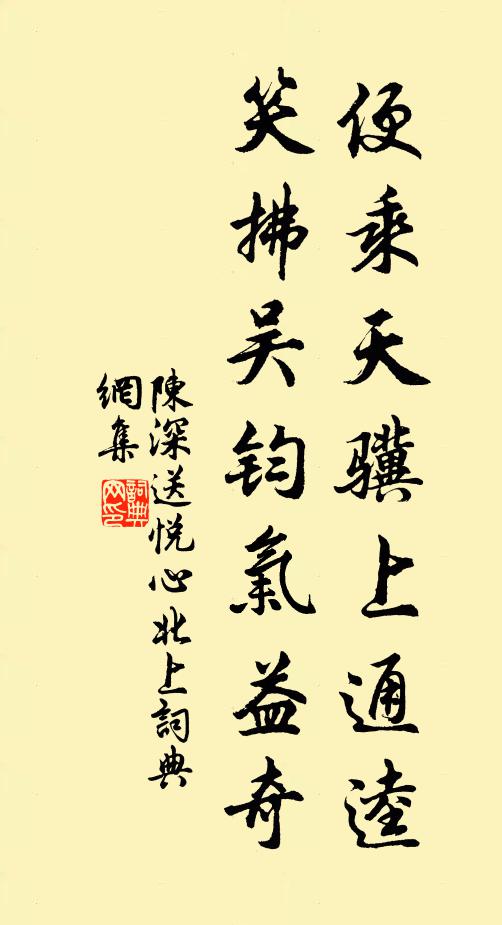 便乘天骥上通逵
笑拂吴钩氣益奇
陳深送悦心北上詞典
網集
詞典
网印